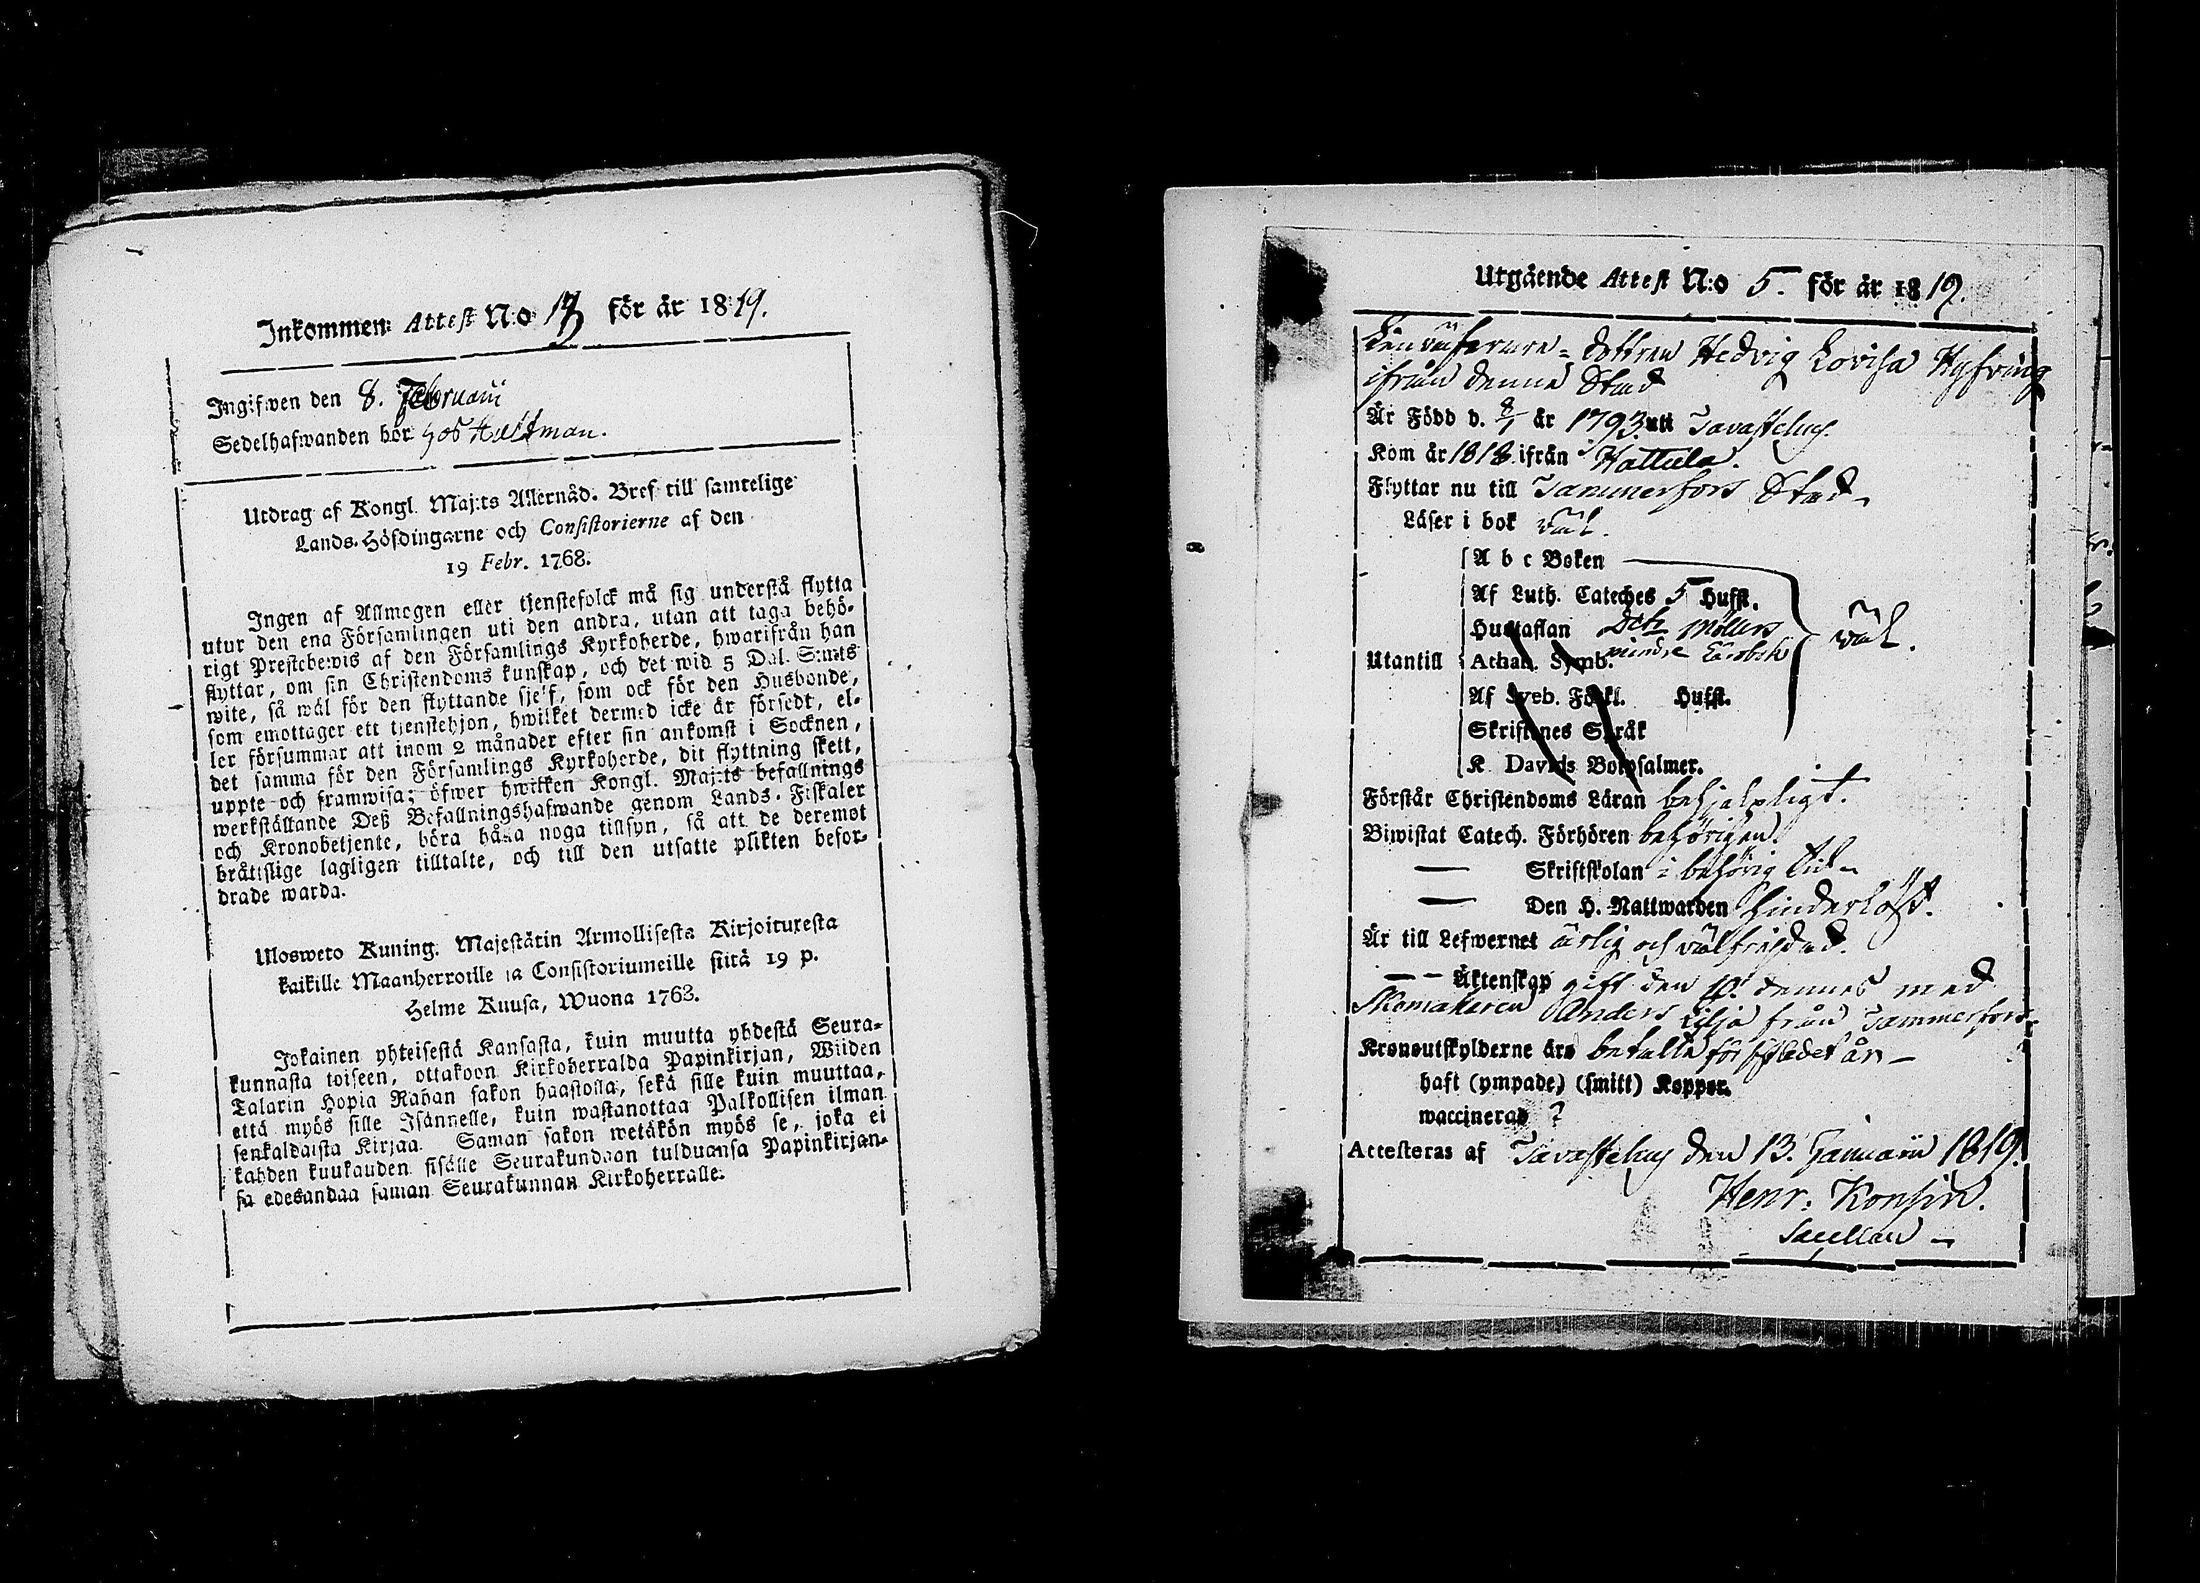 Inkommen: Attest N:o 13 för år 1819.
Ingifwen den 8. Februarii
Sedelhafwanden bor hos Hultman.
Utdrag af Kongl. Maj:ts Allernåd. Bref till samtelige
Lands-Höfdingarne och Consistorierne af den
19 Febr. 1768.
Ingen af Allmogen eller tjenstefolck må sig understå flytta
utur den ena Församlingen uti den andra, utan att taga behö-
rigt Prestebewis af den Församlings Kyrkoherde, hwarifrån han
flyttar, om sin Christendoms kunskap, och det wid 5 Dal. S:mts
wite, så wäl för den flyttande sjelf, som ock för den Husbonde,
som emottager ett tjenstehjon, hwilket dermed icke är försedt, el-
ler försummar att inom 2 månader efter sin ankomst i Socknen,
det samma för den Församlings Kyrkoherde, dit flyttning skett,
uppte och framwisa; öfwer hwilken Kongl. Maj:ts befallnings
werkställande Deß Befallningshafwande genom Lands-Fiskaler
och Kronobetjente, böra hålla noga tillsyn, så att de deremot
bråttslige lagligen tilltalte, och till den utsatte plikten befor-
drade warda.
Ulosweto Kuning. Majestätin Armollisesta Kirjoituxesta
kaikille Maanherroille ja Consistoriumeille siitä 19 p.
Helme Kuusa, Wuona 1768.
Jokainen yhteisestä Kansasta, kuin muutta yhdestä Seura-
kunnasta toiseen, ottakoon Kirkoherralda Papinkirjan, Wiiden
Talarin Hopia Rahan sakon haastolla, sekä sille kuin muuttaa,
että myös sille Isännelle, kuin wastanottaa Palkollisen ilman
senkaldaista Kirjaa. Saman sakon wetäkön myös se, joka ei
kahden kuukauden sisälle Seurakundaan tulduansa Papinkirjan-
sa edesandaa saman Seurakunnan Kirkoherralle.
Utgående Attest N:o 5. för år 1819.
dottren Hedvig Lovisa
ifrån denna Stad
Är Född d. 8/1 år 1793 uti Tavastehus.
Kom år 1818 ifrån Hattula.
Flyttar nu till Tammerfors Stad
Läser i bok väl.
A b c Boken
Af Luth. Cateches 5 Hufst.
Hustaflan Dctr Möllers
Utantill Athan. Symb. mindre Lärobok väl.
Af Sveb. Förkl. Hufst.
Skriftenes Språk
K. Davids Botpsalmer.
Förstår Christendoms Läran behjelpligt.
Biwistat Catech. Förhören behörigen.
— Skriftskolan i behörig tid
— Den H. Nattwarden Hinderlöst.
Är till Lefwernet ärlig och välfrejdad.
— Äktenskap gift den 10 dennes med
Skomakaren Anders Lilja från Tammerfors.
Kronoutskylderne äro betalta för sistledet år
haft (ympade) (smitt) Koppor.
waccinerad ?
Attesteras af Tavastehus den 13. Januarii 1819.
Henr. Konsin.
Sacellan